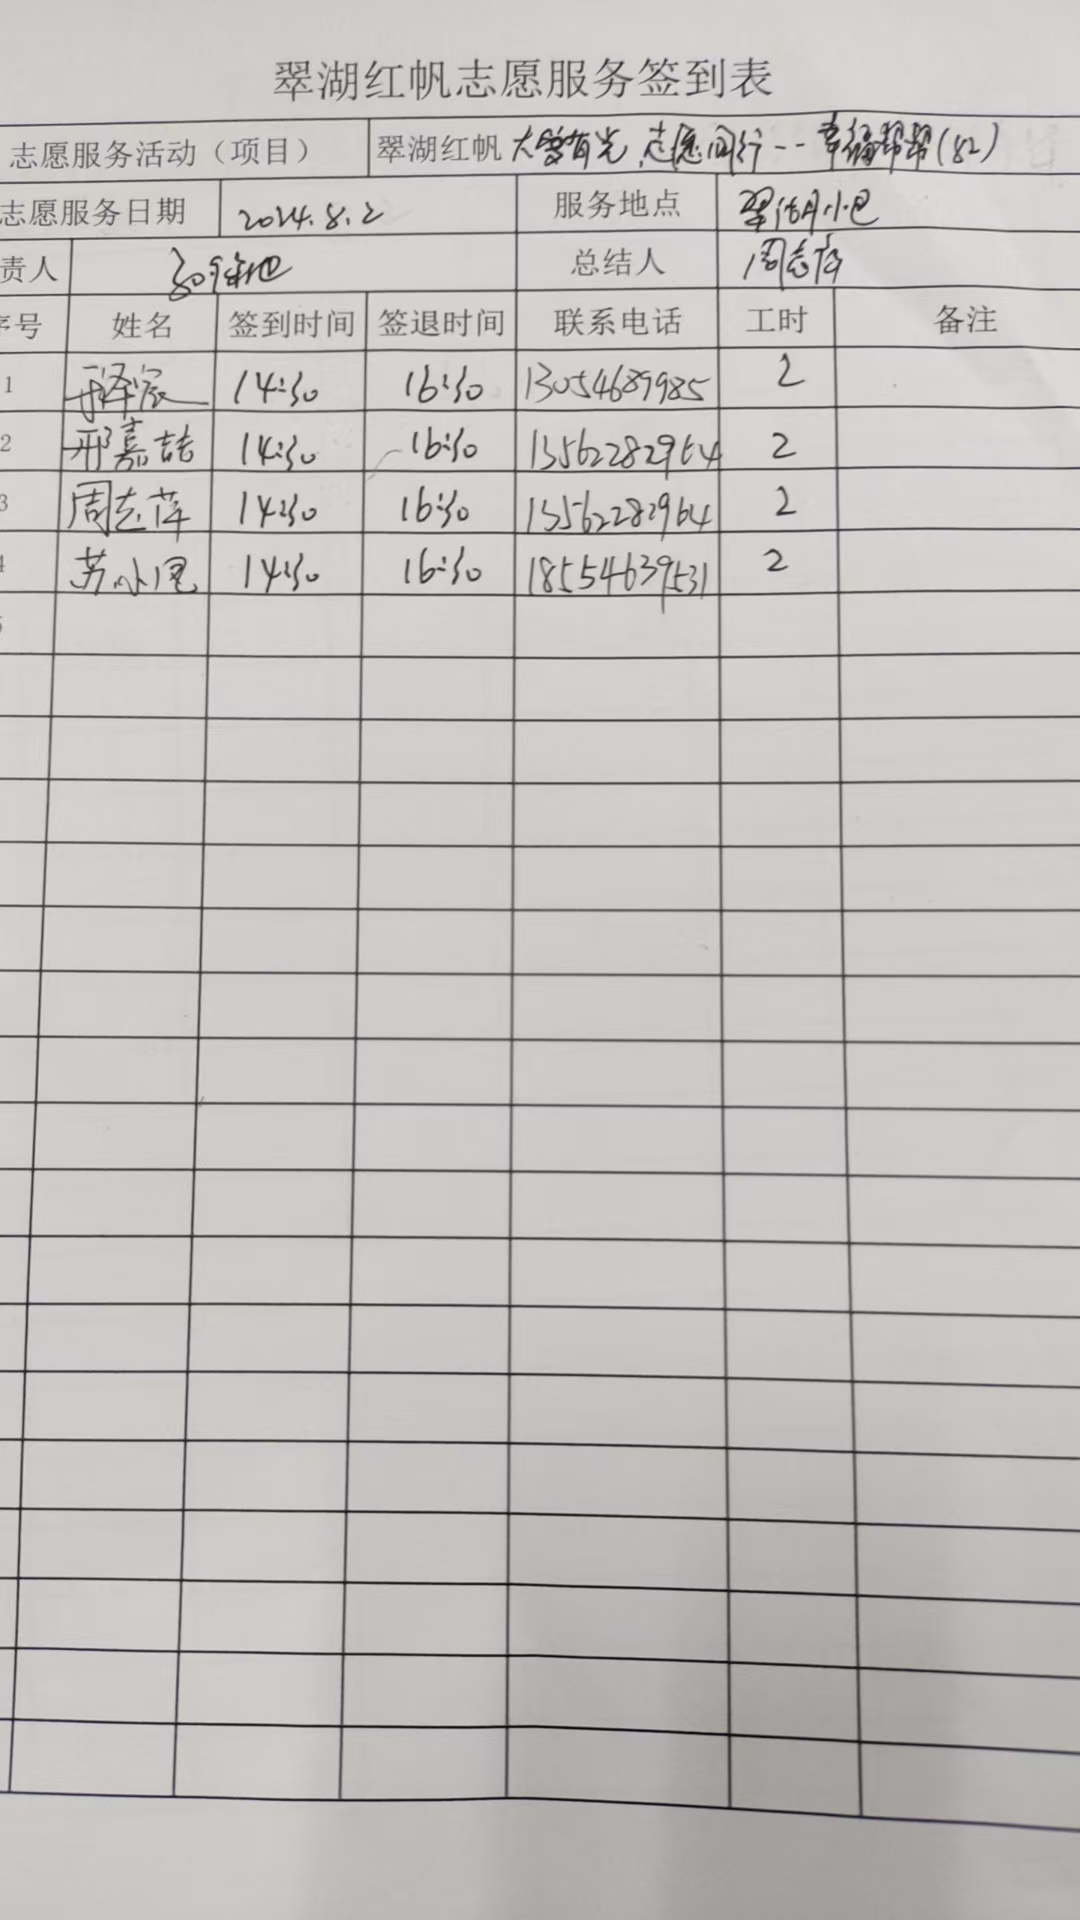 翠湖红帆志愿服务签到表
志愿服务活动（项目） 翠湖红帆 大爱有光，志愿同行--幸福帮帮(82)
志愿服务日期 2024.8.2 服务地点 翠湖小区
责人 总结人 周志萍
序号 姓名 签到时间 签退时间 联系电话 工时 备注
1 于泽宸 14:30 16:30 13054689985 2
2 邢嘉喆 14:30 16:30 13562282964 2
3 周志萍 14:30 16:30 13562282964 2
4 苏小凤 14:30 16:30 18554639531 2
5